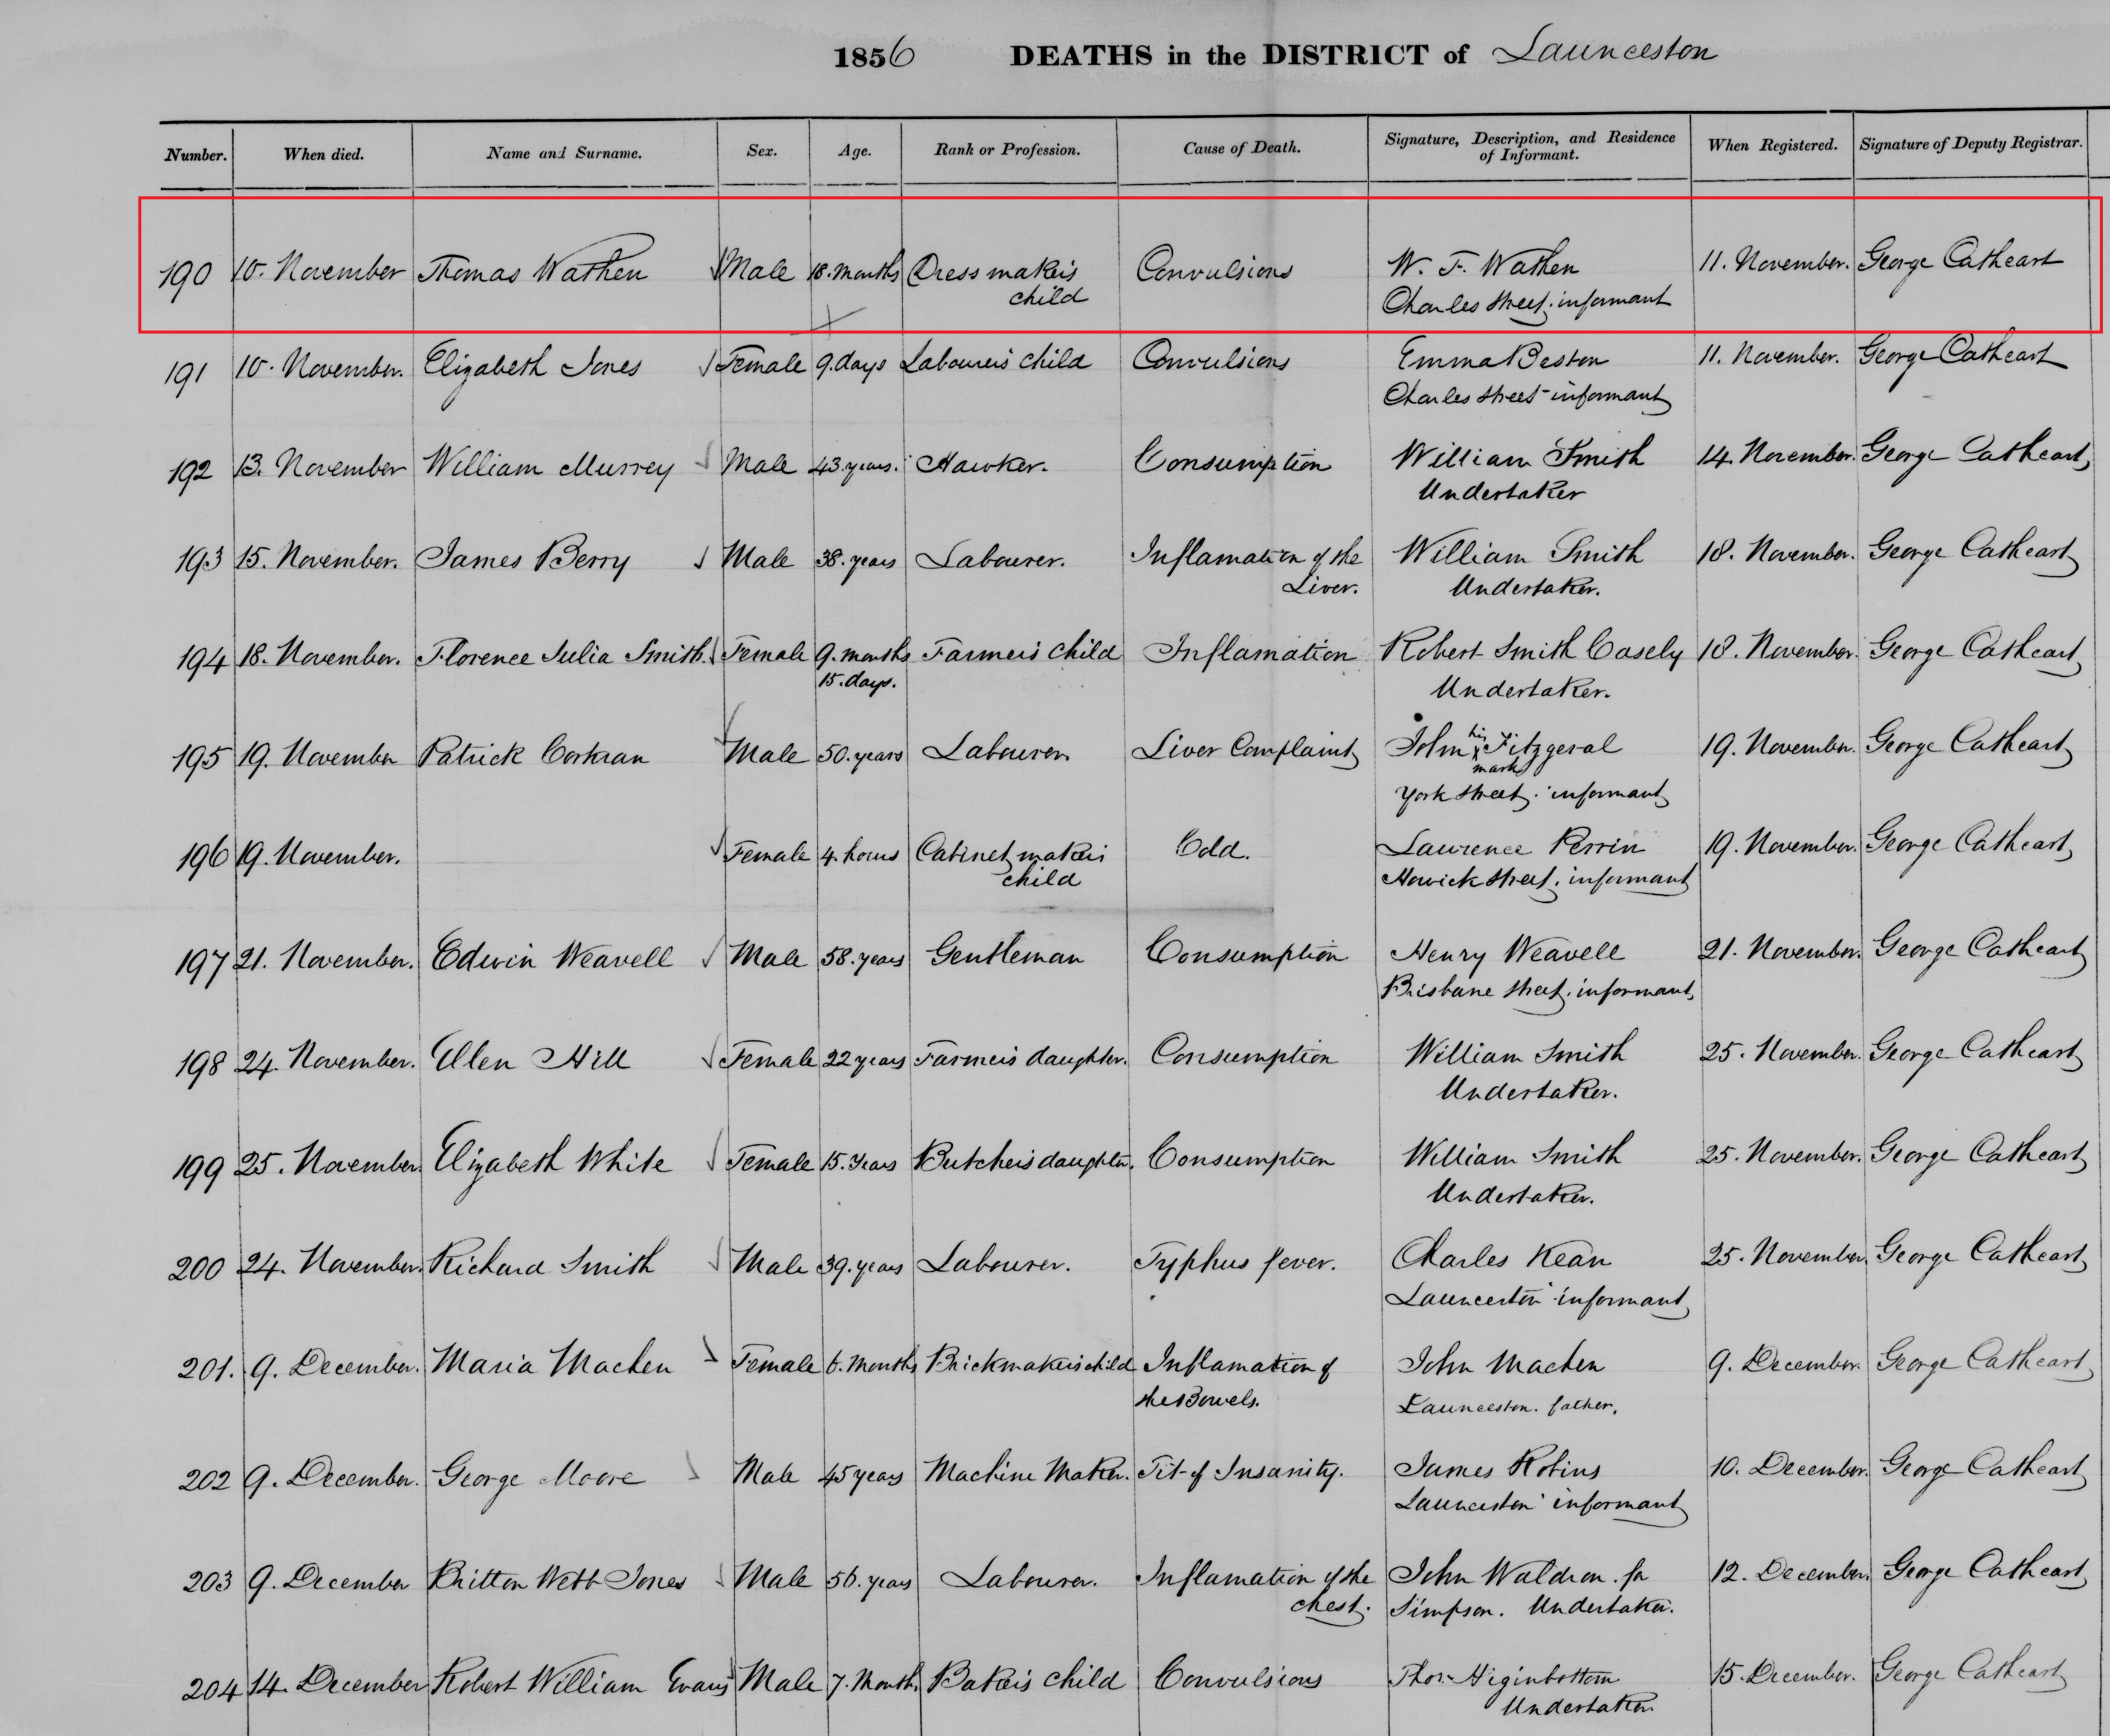 1856 DEATHS in the DISTRICT of Launceston
Number. When died. Name and Surname. Sex. Age. Rank or Profession. Cause of Death. Signature, Description, and Residence of Informant. When Registered. Signature of Deputy Registrar.
190 10. November Thomas Wathen Male 18. months Dress maker's Convulsions W. F. Wathen 11. November. George Cathcart
child Charles Street. informant
191 10. November. Elizabeth Jones Female 9. days Labourer's child Convulsions Emma Beston 11. November. George Cathcart
Charles Street informant
192 13. November William Murrey Male 43. years. Hawker. Consumption William Smith 14. November. George Cathcart
Undertaker
193 15. November. James Berry Male 38. years Labourer. Inflamation of the William Smith 18. November. George Cathcart
Liver. Undertaker.
194 18. November. Florence Julia Smith. Female 9. months Farmer's child Inflamation Robert Smith Casely 18. November. George Cathcart
15. days. Undertaker.
195 19. November Patrick Corkran Male 50. years Labourer Liver Complaint John his x mark Fitzgeral 19. November. George Cathcart
York Street. informant
196 19. November. Female 4. hours Cabinet maker's Cold. Lawrence Perrin 19. November. George Cathcart
child Howick Street. informant
197 21. November. Edwin Weavell Male 58. years Gentleman Consumption Henry Weavell 21. November. George Cathcart
Brisbane Street. informant
198 24. November. Ellen Hill Female 22 years Farmer's daughter. Consumption William Smith 25. November. George Cathcart
Undertaker.
199 25. November. Elizabeth White Female 15. Years Butcher's daughter. Consumption William Smith 25. November. George Cathcart
Undertaker.
200 24. November. Richard Smith Male 39. years Labourer. Typhus fever. Charles Kean 25. November. George Cathcart
Launceston informant
201. 9. December. Maria Machen Female 6. Months Brickmaker's child Inflamation of John Machen 9. December. George Cathcart
the Bowels. Launceston. father.
202 9. December. George Moore Male 45 years Machine Maker. Fit of Insanity. James Robins 10. December. George Cathcart
Launceston informant
203 9. December Britton Webb Jones Male 56. years Labourer. Inflamation of the John Waldron. for 12. December. George Cathcart
chest. Simpson. Undertaker.
204 14. December Robert William Evans Male 7. Months Baker's child Convulsions Thos. Higinbottom 15. December. George Cathcart
Undertaker.